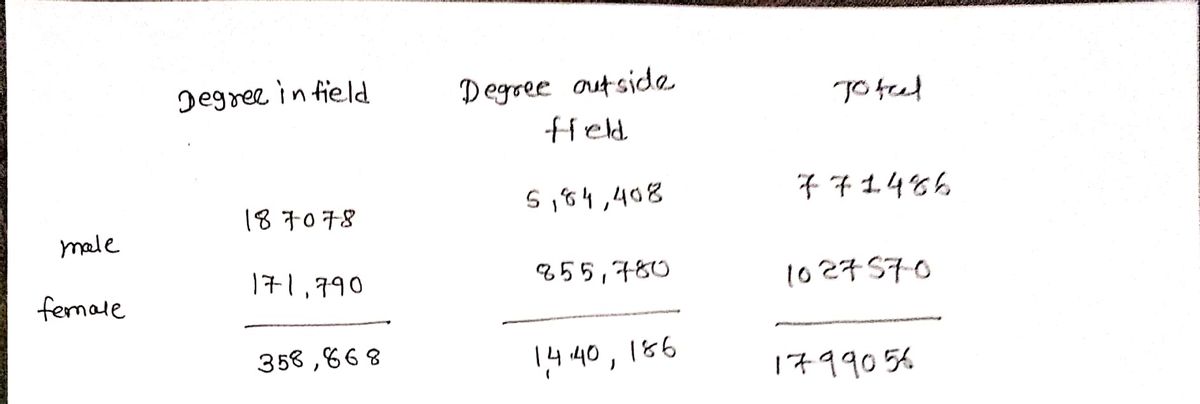 Degree in field Degree outside Total
field
5,84,408 771486
187078
male
855,780 1027570
171,790
female
358,868 1440,186 1799056